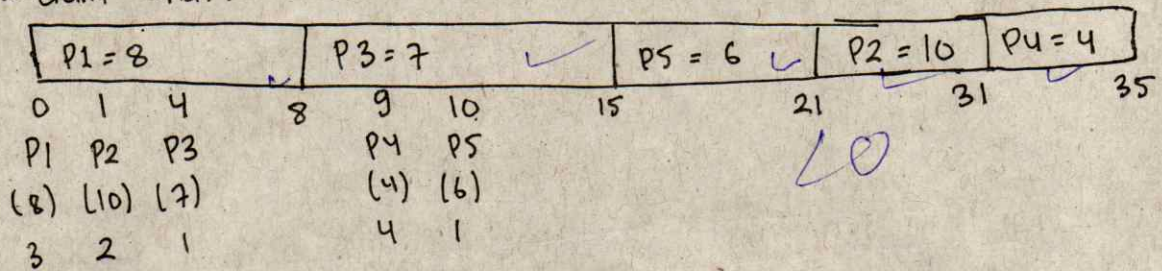 P1 = 8 P3 = 7 P5 = 6 P2 = 10 P4 = 4
0 1 4 8 9 10 15 21 31 35
P1 P2 P3 P4 P5
(8) (10) (7) (4) (6)
3 2 1 4 1